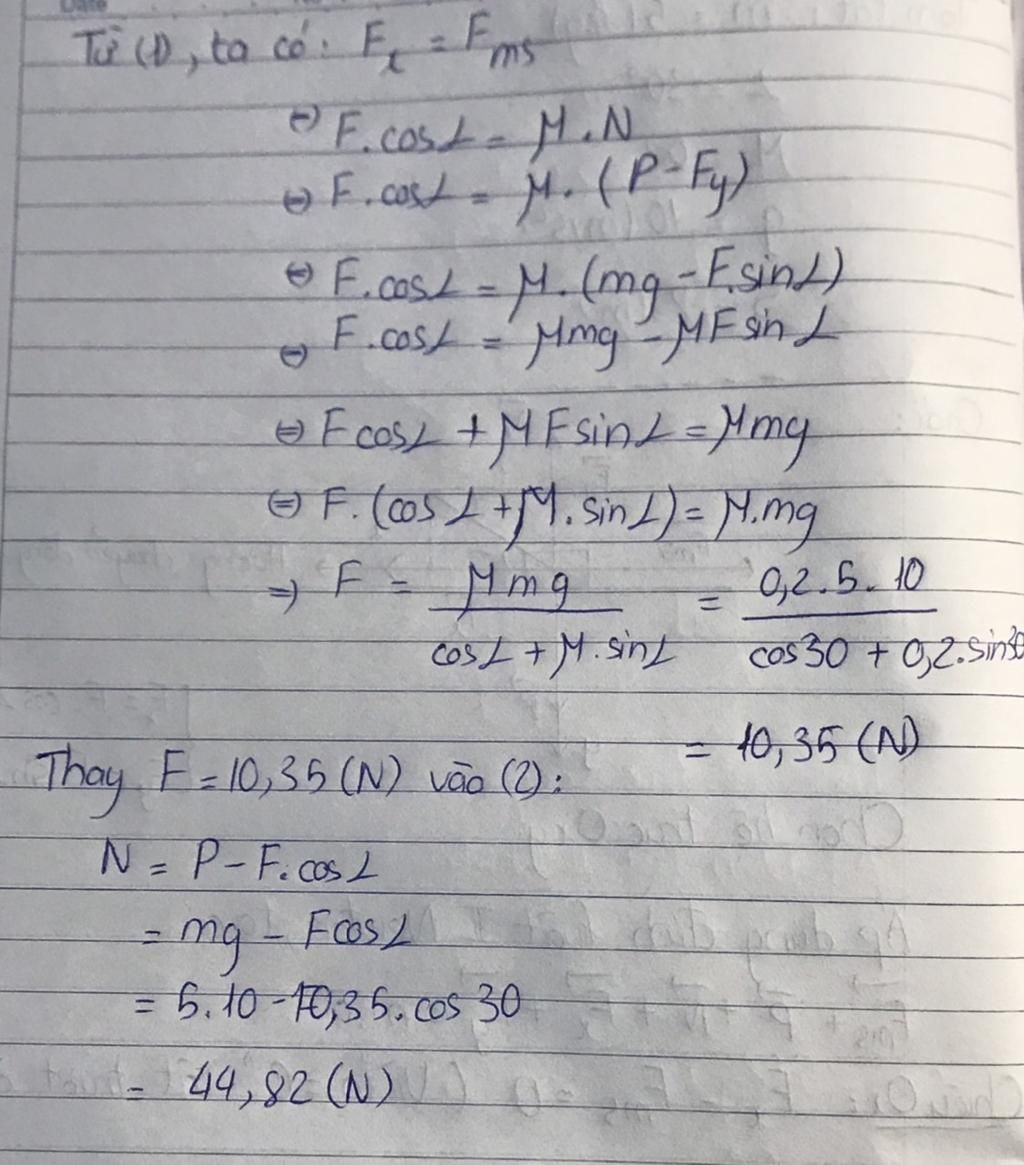 Từ (1), ta có: Fₓ = Fms
⇔ F.cosα = μ.N
⇔ F.cosα = μ.(P-Fy)
⇔ F.cosα = μ.(mg-F.sinα)
⇔ F.cosα = μmg - μFsinα
⇔ Fcosα + μFsinα = μmg
⇔ F.(cosα + μ.sinα) = μ.mg
⇒ F = μmg / cosα + μ.sinα = 0,2.5.10 / cos30 + 0,2.sin30
= 10,35 (N)
Thay F = 10,35 (N) vào (2):
N = P - F.cosα
= mg - Fcosα
= 5.10 - 10,35.cos 30
= 44,82 (N)